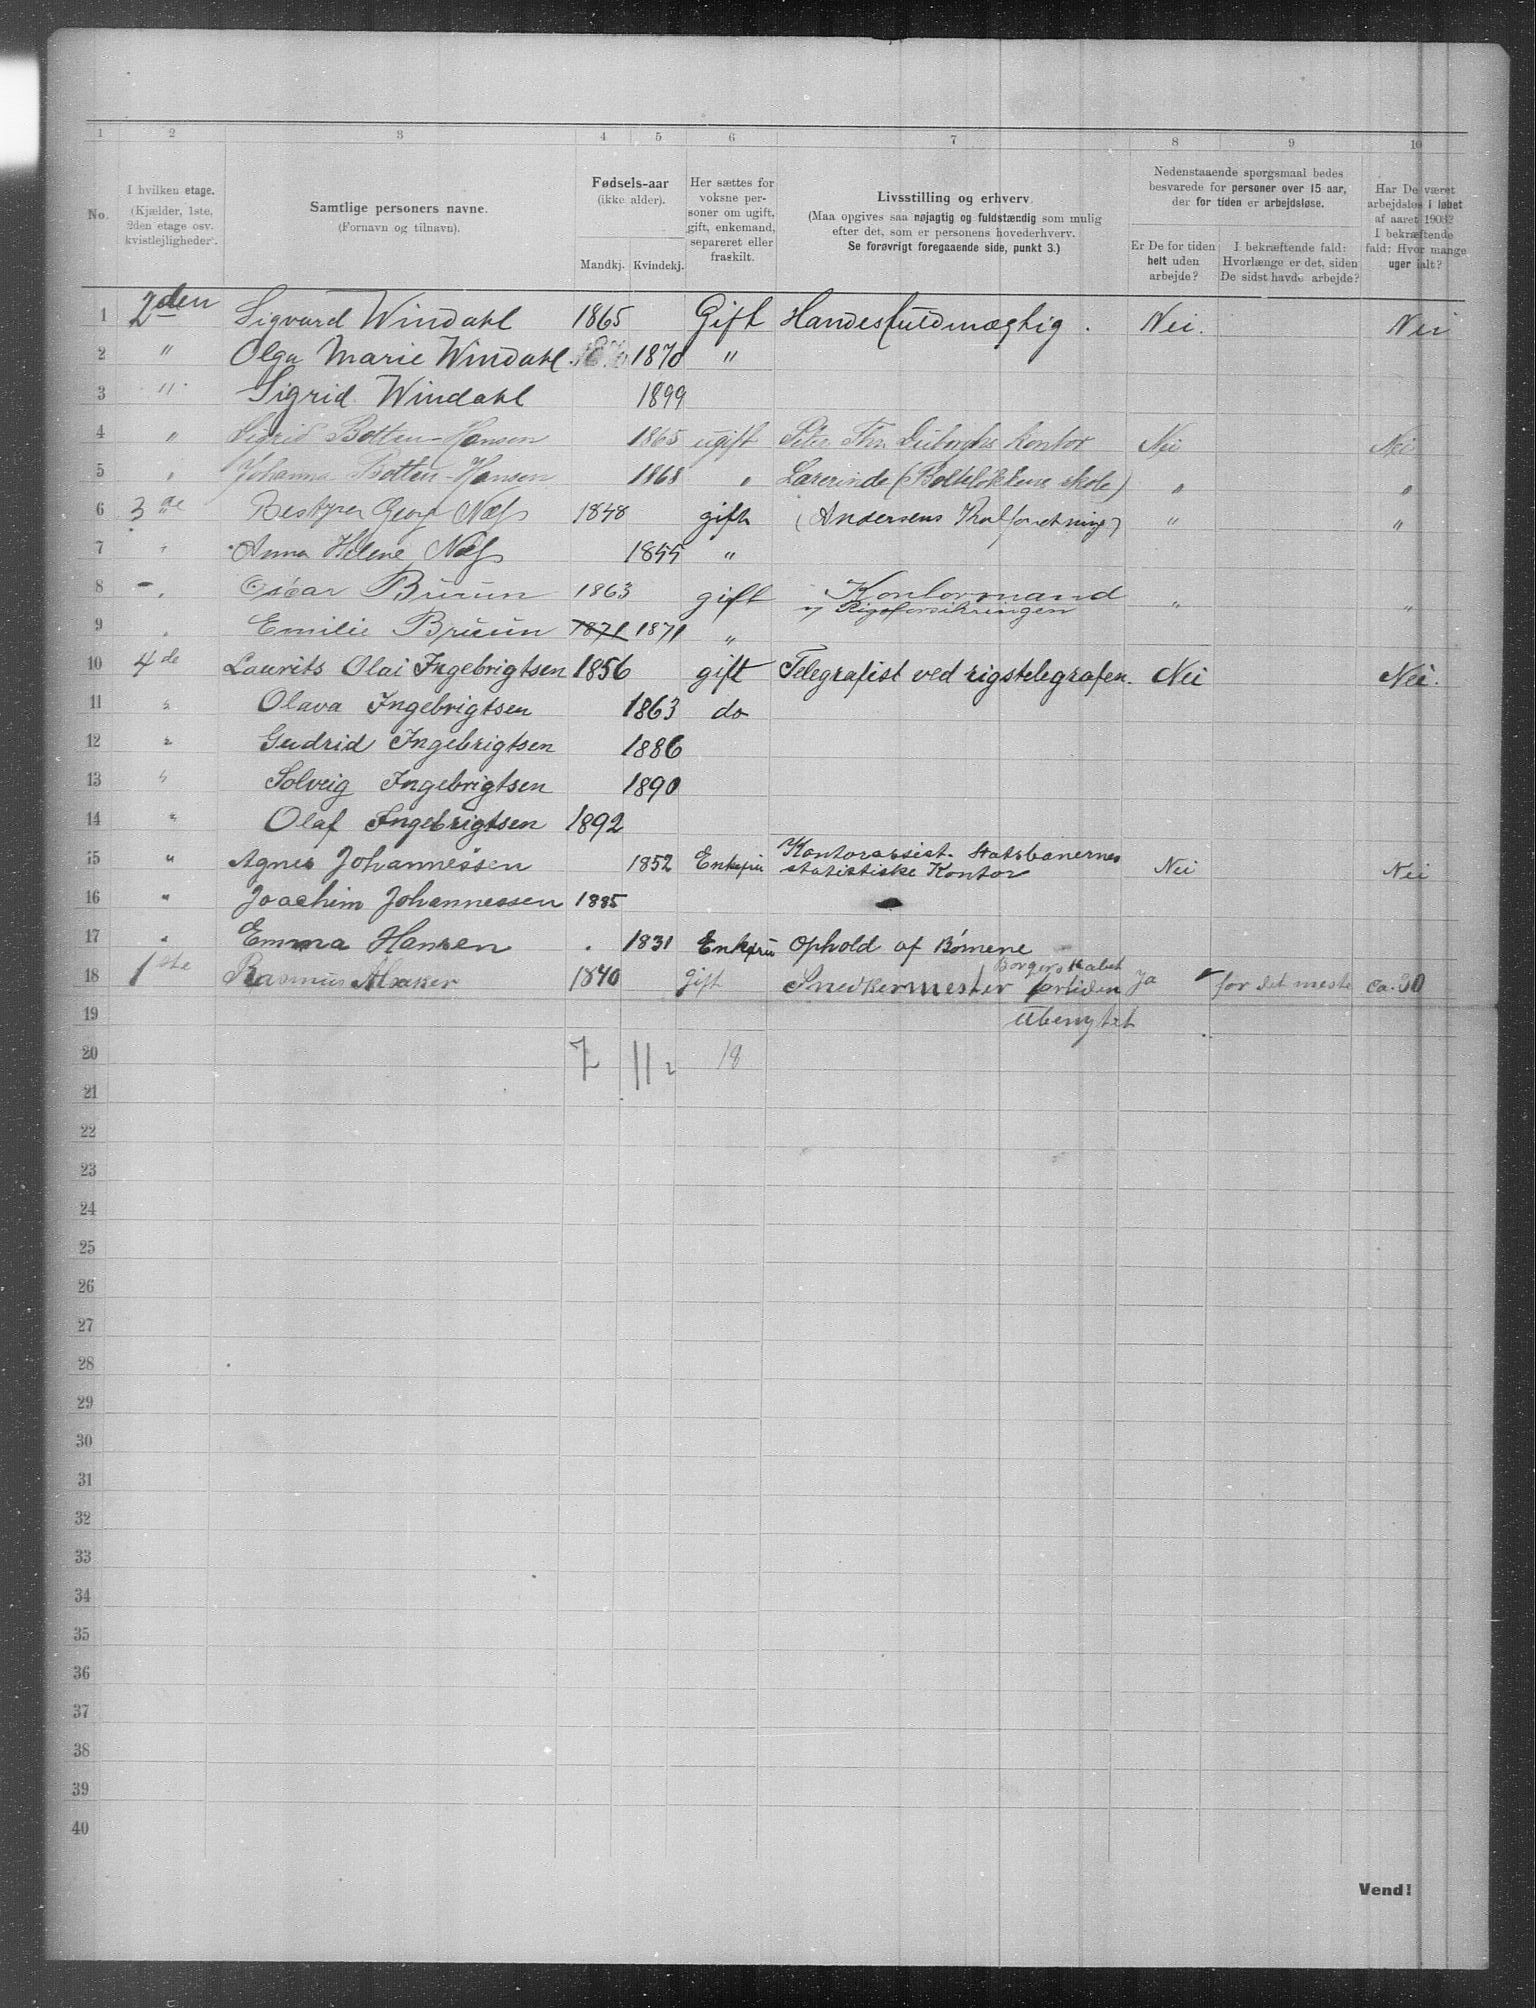 1 2 3 4 5 6 7 8 9 10
No.
I hvilken etage.
(Kjælder, 1ste,
2den etage osv.
kvistlejligheder).
Samtlige personers navne.
(Fornavn og tilnavn).
Fødsels-aar
(ikke alder).
Mandkj. Kvindekj.
Her sættes for
voksne per-
soner om ugift,
gift, enkemand,
separeret eller
fraskilt.
Livsstilling og erhverv.
(Maa opgives saa nøjagtig og fuldstændig som mulig
efter det, som er personens hovederhverv.
Se forøvrigt foregaaende side, punkt 3.)
Nedenstaaende spørgsmaal bedes
besvarede for personer over 15 aar,
der for tiden er arbejdsløse.
Er De for tiden
helt uden
arbejde?
I bekræftende fald:
Hvorlænge er det, siden
De sidst havde arbejde?
Har De været
arbejdsløs i løbet
af aaret 1902
I bekræftende
fald: Hvor mange
uger ialt?
1 2den Sigvard Windahl 1865 Gift Handesfuldmægtig. Nei. Nei
2 " Olga Marie Windahl 1870 "
3 " Sigrid Windahl 1899
4 " Sigrid Botten-Hansen 1865 ugift Kontor Nei Nei
5 " Johanna Botten-Hansen 1868 " Lærerinde (Bolteløkkens skole) " "
6 3de Bestyrer Georg Næss 1848 gift (Andersens Kulforretning) " "
7 " Anna Helene Næss 1855 "
8 " Oscar Bruun 1863 gift Kontormand " "
v/ Rigsforsikringen
9 " Emilie Bruun 1871 1871 "
10 4de Laurits Olai Ingebrigtsen 1856 gift Telegrafist ved rigstelegrafen. Nei Nei.
11 " Olava Ingebrigtsen 1863 do
12 " Gudrid Ingebrigtsen 1886
13 " Solveig Ingebrigtsen 1890
14 " Olaf Ingebrigtsen 1892
15 " Agnes Johannessen 1852 Enkefru Kontorassist. Statsbanernes Nei Nei
statistiske Kontor
16 " Joachim Johannessen 1885
17 " Emma Hansen 1831 Enkefru Ophold af Børnene
18 1ste Rasmus Alsaker 1840 Gift Snedkermester Borgerskabet fortiden Ja for det meste ca. 30
19 Ubenyttet
20 7 11 18
21
22
23
24
25
26
27
28
29
30
31
32
33
34
35
36
37
38
39
40
Vend!